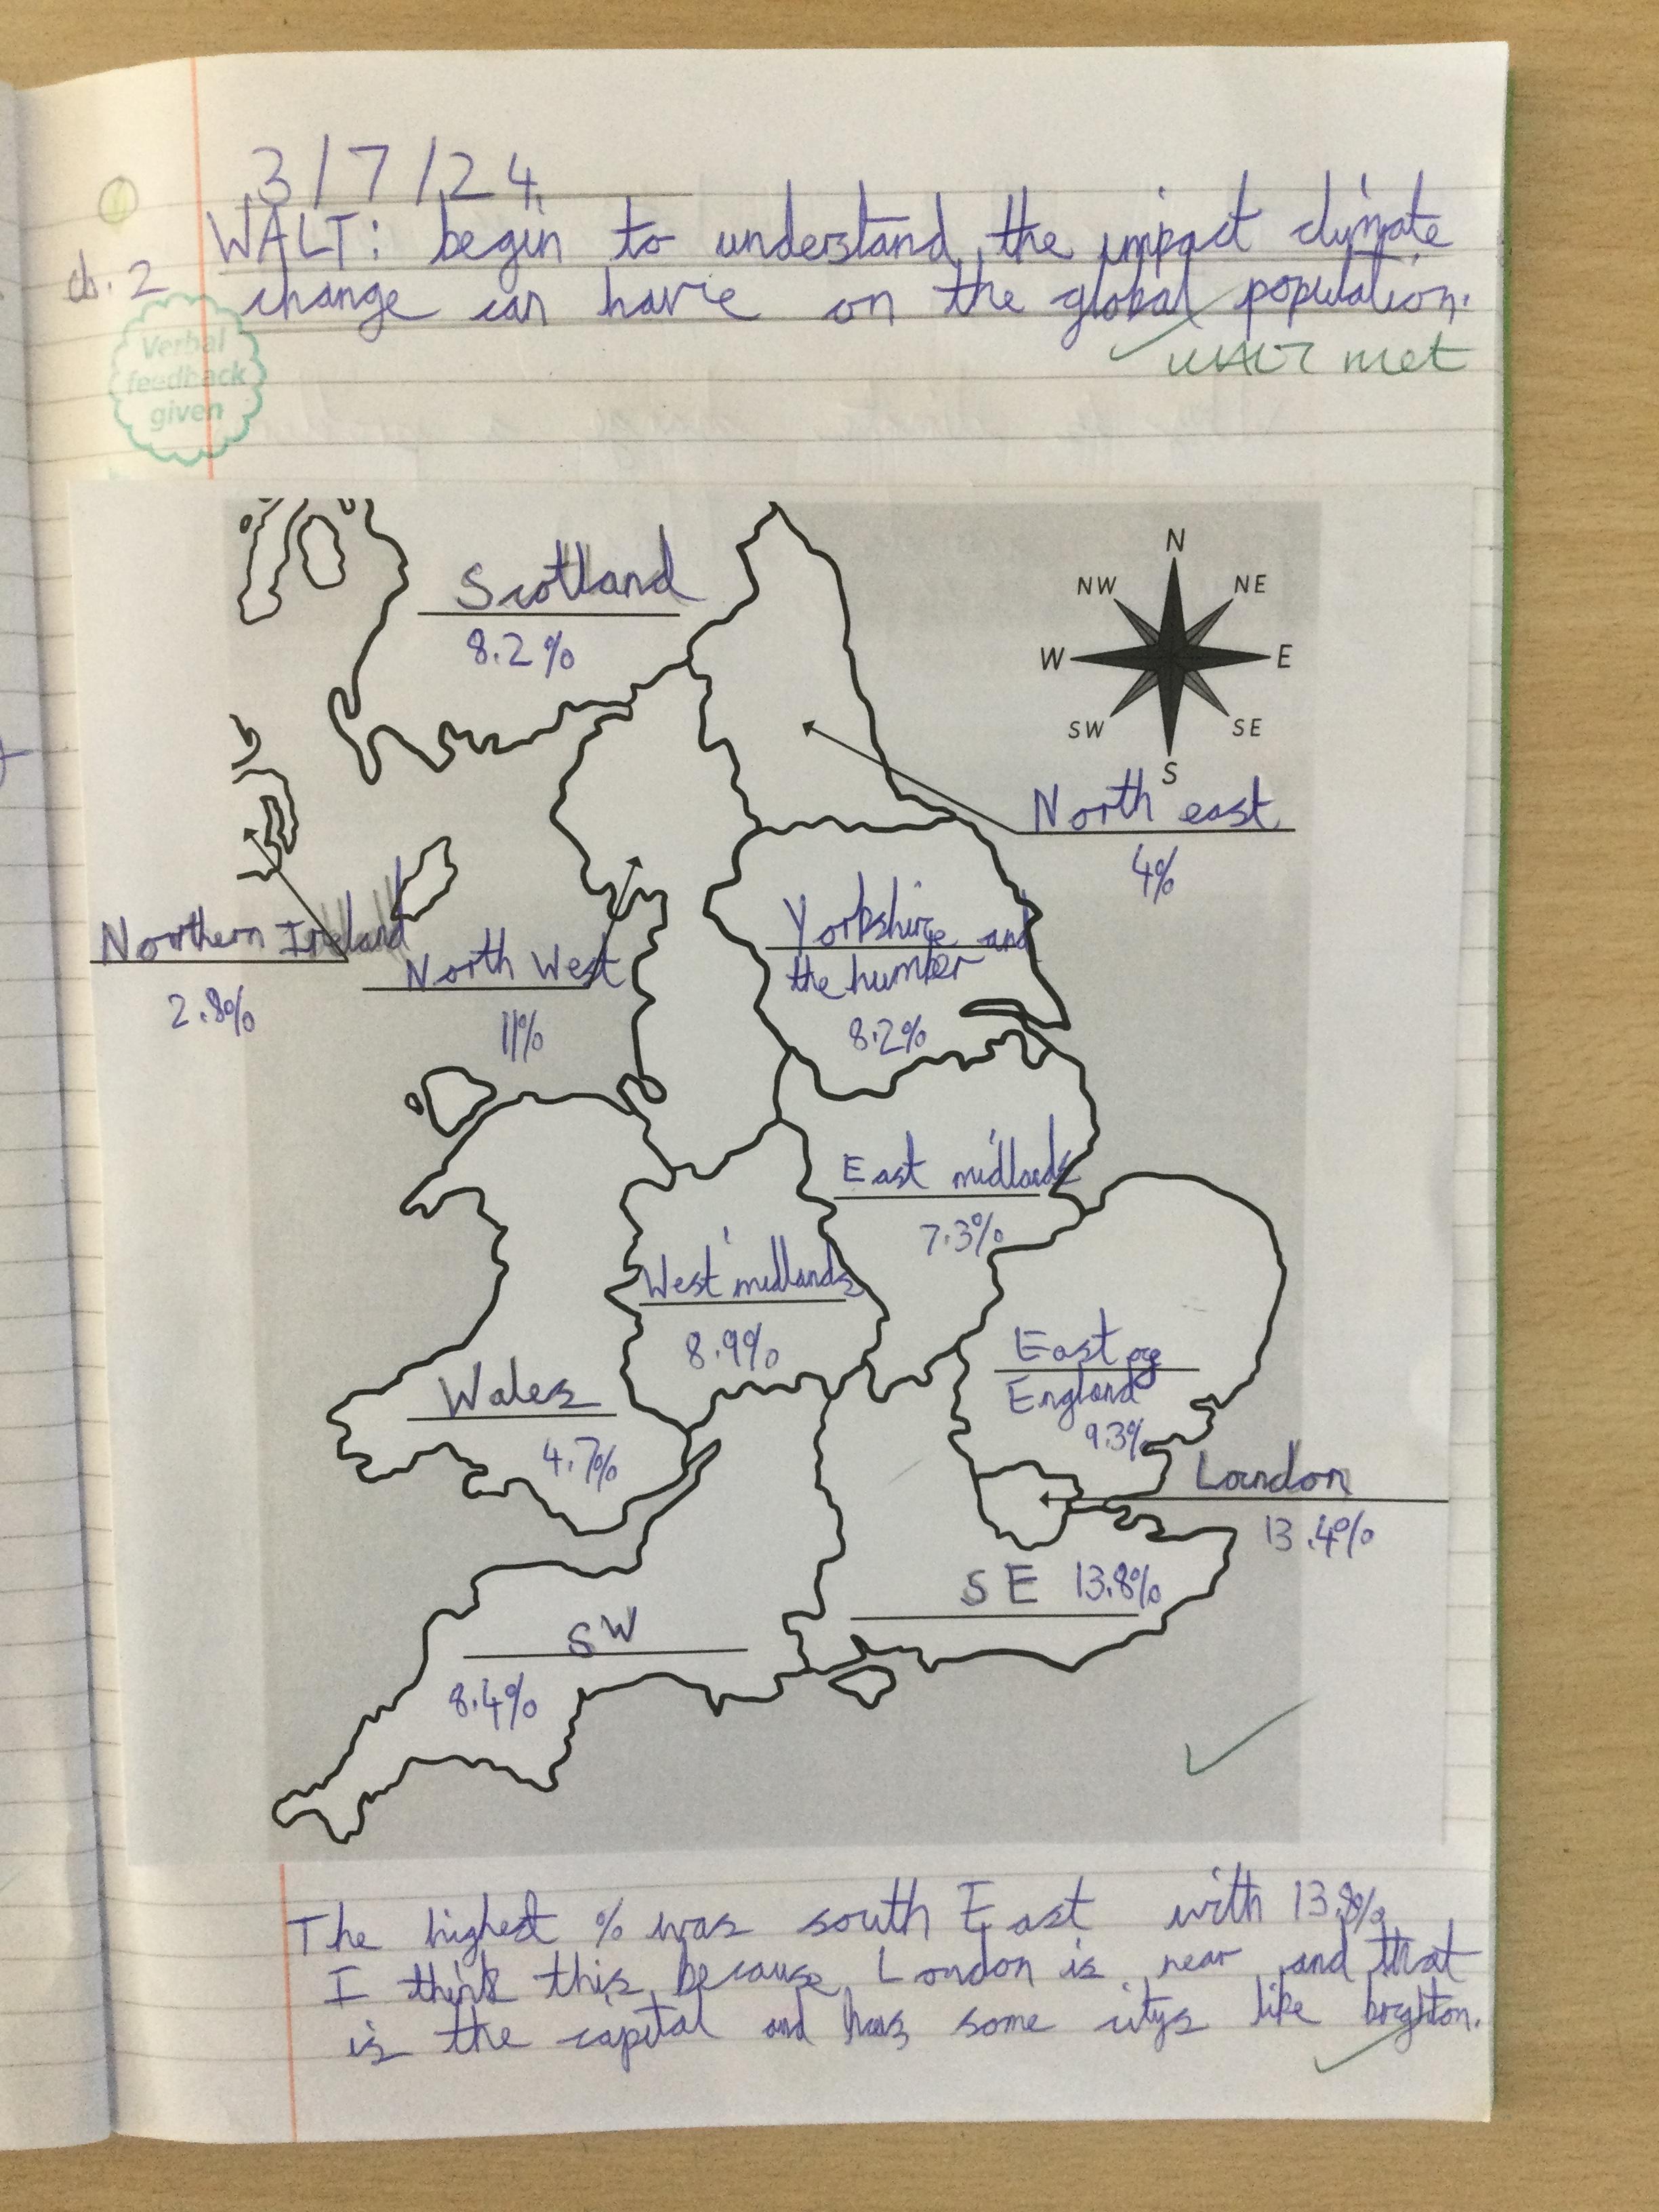 3/7/24
WALT: begin to understand the impact climate
ch. 2
change can have on the global population.
WALT met
Verbal
feedback
given
Scotland
8.2%
N
NW
NE
W
E
SW
SE
S
North east
4%
Northern Ireland
2.8%
North West
11%
Yorkshire and
the humber
8.2%
East midlands
7.3%
West midlands
8.9%
Wales
4.7%
East of
England
9.3%
London
13.4%
SE 13.8%
SW
8.4%
The highest % was south East with 13.8%
I think this because London is near and that
is the capital and has some citys like brghton.